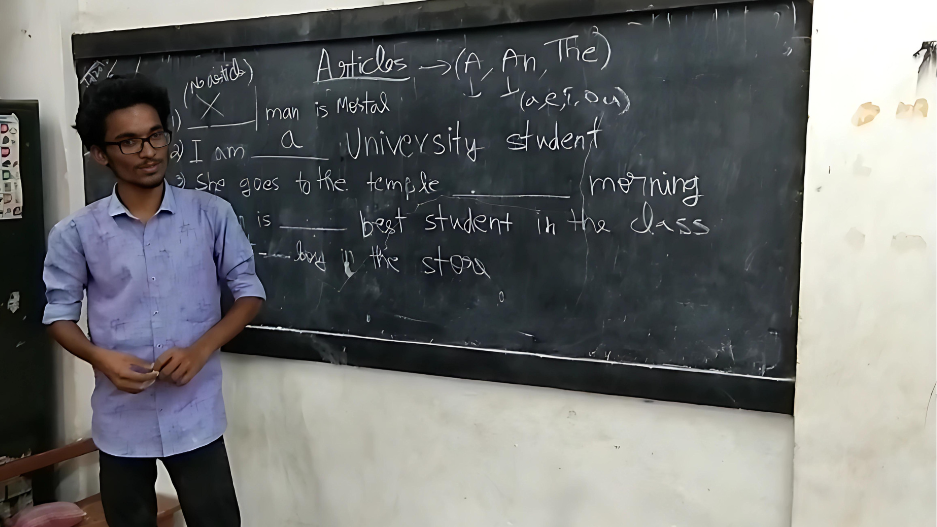 Articles → (A, An, The)
(a, e, i, o u)
(No article)
1) X man is Mostal
2) I am a University student
3) She goes to the temple ______ morning
is ____ best student in the class
boy in the store